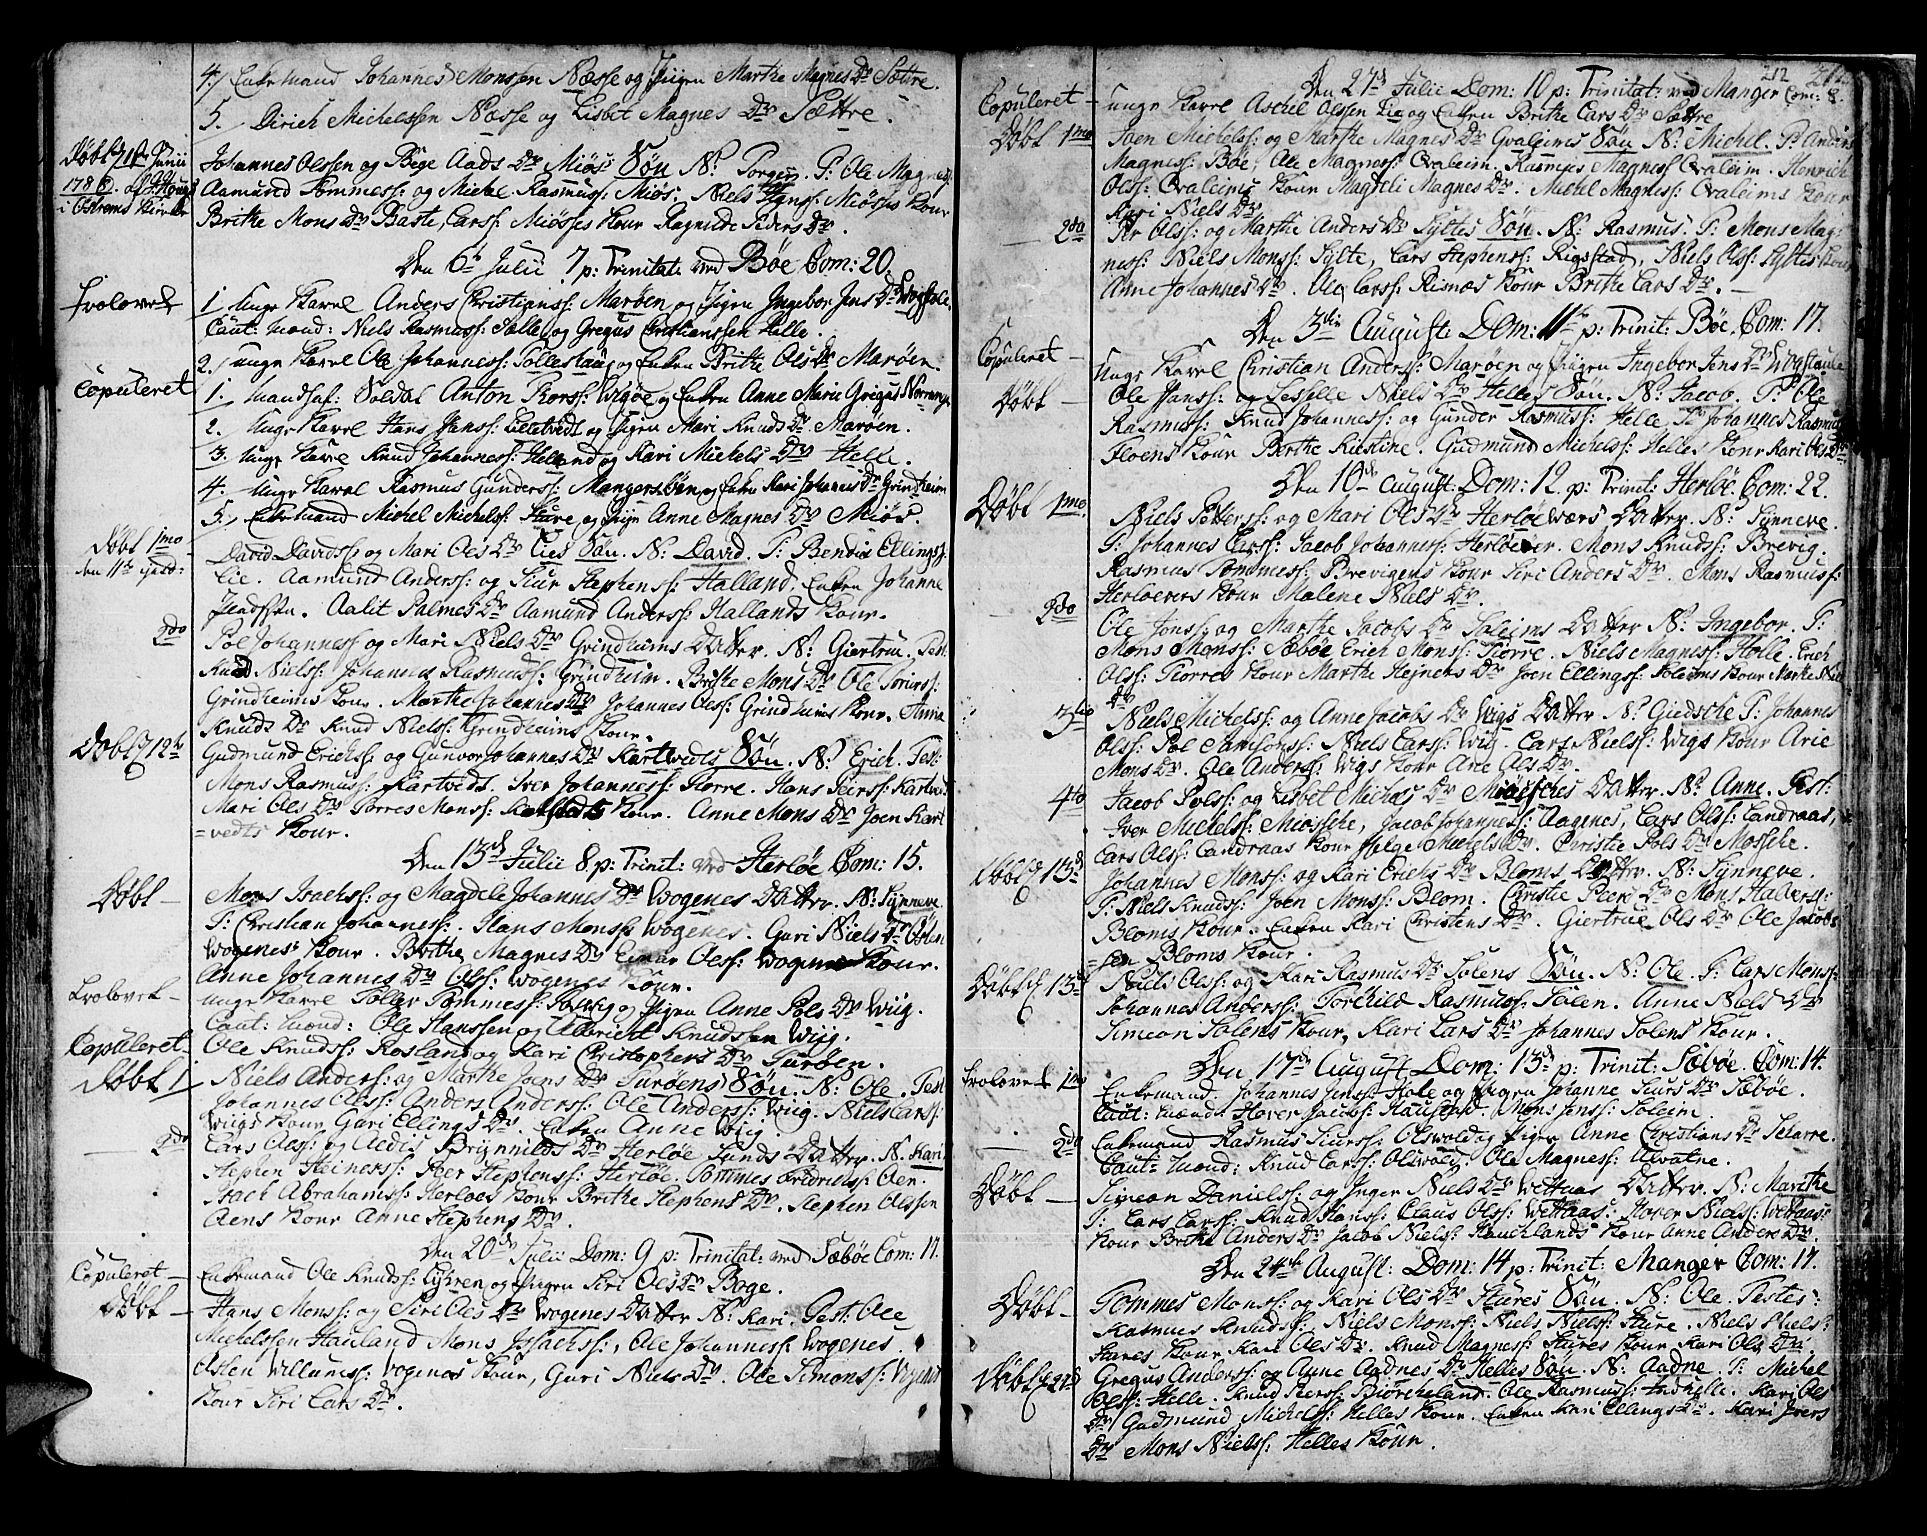 4. Enkemand Johannes Monssen Næsse og Pigen Marthe Magnes Dr Sættre.
5. Dirich Michelssen Næsse og Lisbet Magnes Dr Sættre.
Døbt Junii Johannes Olssen og Aads Dr Miøs Søn N: Torger T: Ole Magness:
1788. Aamund Tommess: og Michel Rasmuss: Miøs. Niels Hanss: Miøses Kone
i Ostrems Kirke Brithe Mons Dr Baste, Larss: Miøses Kone Ragnilde Peders Dr.
Den 6t Julii 7 p: Trinitat: ved Bøe Com: 20.
Trolovet 1. Unge Karl Anders Christianss: Marøen og Pigen Ingebor Jens Dr
Caut: mænd: Niels Rasmuss: og Gregus Christianssen Helle.
2. unge Karl Ole Johanness: Tollestaag og Enken Brithe Ols Dr Marøen.
Copuleret 1. Landsaf: Soldat Anton Thorss: Wigøe og Enken Anne Marie Grigus
2. Unge Karl Hans Janss: og Pigen Mari Knuds Dr Marøen.
3. unge Karl Knud Johanness: Helland og Kari Michels Dr Helle.
4. Unge Karl Rasmus Gunderss: Mangersbøen og Enken Kari Johannes Dr Grindheim
5. Enkemand Michel Michelss: Sture og Pigen Anne Magnes Dr Miøs.
Døbt 1mo David Davidss: og Mari Ols Dr Lies Søn. N: David. T: Bendix Ellingss:
den 11te Lie. Aamund Anderss: og Siur Stephenss: Halland. Enken Johanne
Aalit Palmes Dr Aamund Anderss: Hallands Kone.
2do Pol Johanness: og Mari Niels Dr Grindheims Datter. N: Giertrue. Test:
Knud Nielss: Johannes Rasmuss: Grindheim. Brithe Mons Dr Ole
Grindheims Kone. Marthe Johannes Dr Johannes Olss: Grindheims Kone. Anna
Knuds Dr Knud Nielss: Grindheims Kone.
Døbt 12te Gudmund Erichss: og Gunvor Johannes Dr Kartvedts Søn. N: Erich. Test:
Mons Rasmuss: Kartvedt. Iver Johanness: Storre. Hans Peirss: Kartved
Mari Ols Dr Torres Monss: Kone. Anne Mons Dr Joen Kart
=vedts Kone.
Den 13d Julii 8 p: Trinit: ved Herløe Com: 15.
Døbt Mons Isachss: og Magdele Johannes Dr Wogenes Datter. N: Synneve.
T: Christian Johanness: Hans Monss: Wogenes. Guri Niels Dr Osten
Wogenes Kone. Brithe Magnes Dr Einar Olss: Wogenes Kone.
Anne Johannes Dr Olss: Wogenes Kone.
Trolovet unge Karl Toller Tommess: og Pigen Anne Pols Dr Wiig.
Caut: mænd: Ole Hanssen og Albricht Knudssen Wiig.
Copuleret Ole Knudss: Rosland og Kari Christophers Dr Turøen.
Døbt 1 Niels Anderss: og Marthe Joens Dr Turøens Søn. N: Ole. Test
Johannes Olss: Anders Anderss: Ole Anderss: Wiig. Niels Larss:
Wiigs Kone Gari Ellings Dr. Enken Anne Wiig.
2do Lars Olss: og Aedis Brynnilds Dr Herløe Sunds Datter. N: Kari.
Stephen Steinerss: Peer Stephenss: Herløe. Tommes Fredrichss: Oen.
Isack Abrahamss: Herløes Kone Brithe Stephens Dr. Stephen Olssen
Oens Kone Anne Stephens Dr.
Den 20de Julii Dom: 9 p: Trinitat: ved Sæbøe Com: 17.
Copuleret Enkemand Ole Knudss: Lyhren og Pigen Siri Ols Dr Boge.
Døbt Hans Monss: og Siri Ols Dr Wogenes Datter N: Kari. Test: Ole
Michelssen Hauland Mons Issachss: Ole Johanness: Wogenes.
Osten Willumss: Wogenes Kone, Guri Niels Dr. Ole Simonss:
Kone Siri Lars Dr.
212
Den 27d Julii Dom: 10 p: Trinitat: ved Manger Com: 8.
Copuleret unge Karl Aschel Olssen Lie og Enken Brithe Lars Dr Sættre
Døbt 1mo Joen Michelss: og Marthe Magnes Dr Qvaleims Søn N: Michel. T: Anders
Magness: Bøe, Ole Magness: Qvaleim. Rasmus Magness Qvaleim. Henrich
Olss: Qvaleims Kone Magteli Magnes Dr. Michel Magness: Qvaleims Kone
Kari Niels Dr.
2do Per Olss: og Marthe Anders Dr Syltes Søn. N: Rasmus. T: Mons Mag:
ness: Niels Monss: Sylte, Lars Stephenss: Rigstad, Niels Olss: Syltes Kone
Anne Johannes Dr. Ole Larss: Risnæs Kone Brithe Lars Dr.
Den 3die Auguste Dom: 11te p: Trinit: Bøe. Com: 17.
Copuleret Unge Karl Christian Anderss: Marøen og Pigen Ingebor Jens Dr
Døbt Ole Janss: og Sesselle Niels Dr Helles Søn. N: Jacob. T: Ole
Rasmuss: Knud Johanness: og Gunder Rasmuss: Helle. Johannes Rasmus
Floens Kone Berthe Kirstine. Gudmund Michelss: Helles Kone Kari Ols Dr
Den 10de August: Dom: 12. p: Trinit: Herløe. Com: 22.
Døbt 1mo. Niels Petterss: og Mari Ols Dr Herløeværs Datter. N: Synneve.
T: Johannes Larss: Jacob Johanness: Herløever. Mons Knudss: Brevig.
Rasmus Tommess: Brevigens Kone Siri Anders Dr. Mons Rasmuss:
Herløevers Kone Malene Niels Dr.
2do Ole Jonss: og Marthe Jacobs Dr Soleims Datter N: Ingebor. T:
Mons Monss: Sæbøe Erich Monss: Storre. Niels Magness: Holle. Erich
Olss: Storres Kone Marthe Stejners Dr Joen Ellingss: Soleims Kone Marthe Niels
Dr
3tio Niels Michelss: og Anne Jacobs Dr Wigs Datter N: Giedsche T: Johannes
Olss: Pol Samsonss: Niels Larss: Wiig. Lars Nielss: Wigs Kone Arie
Mons Dr. Ole Anderss: Wigs Kone Arie Ols Dr.
4to Jacob Polss: og Lisbet Michels Dr Miøsches Datter. N: Anne. Test:
Iver Michelss: Miøssche, Jacob Johanness: Aagnes, Lars Olss: Landraas,
Lars Olss: Landraas Kone Helge Michels Dr. Christie Pols Dr Mossche.
Døbt 13d Johannes Monss: og Kari Erichs Dr Bloms Datter. N: Synneve.
T: Niels Knudss: Joen Monss: Blom. Christie Peer Dr Mons Halverss:
Bloms Kone. Enken Kari Christens Dr. Giertrue Ols Dr Ole Jacobs
sen Bloms Kone.
Døbt 13d Niels Olss: og Kari Rasmus Dr Solens Søn. N: Ole. T: Lars Monss:
Johannes Anderss: Torchild Rasmuss: Solen. Anne Niels Dr
Simeon Solens Kone, Kari Lars Dr Johannes Solens Kone.
Den 17de August Dom: 13d p: Trinit: Sæbøe. Com: 14.
Trolovet 1mo Enkemand. Johannes Jenss: Hole og Pigen Johanne Siurs Dr Sæbøe.
Caut: mænd: Hover Jacobss: Haustad. Mons Jenss: Soleim.
2do Enkemand Rasmus Siurss: Olswold og Pigen Anne Christians Dr Scharre.
Caut: mænd: Knud Larss: Olswold. Ole Magness: Alvatne.
Døbt Simeon Danielss: og Inger Niels Dr Wettaas Datter. N: Marithe
T: Lars Larss: Knud Hanss: Claus Olss: Wettaas: Hover Nielss: Wettaas:
Kone Brithe Anders Dr Jacob Nielss: Houchlands Kone Anne Anders Dr.
Den 24de August: Dom: 14 p: Trinit: Manger Com: 17.
Døbt Tommes Monss: og Kari Ols Dr Stures Søn. N: Ole. Testes:
Rasmus Knudss: Niels Monss: Niels Nielss: Sture. Niels Niels:
Stures Kone Kari Ols Dr. Knud Magness: Stures Kone Kari Ols Dr.
Døbt 21d Gregus Anderss: og Anne Aadnes Dr Helles Søn. N: Aadne. T: Michel
Olss: Helle. Knud Iverss: Biørcheland. Ole Rasmuss: Indhelle. Kari Ols
Dr Gudmund Michelss: Helles Kone. Enken Kari Ellings Dr. Kari Ivers
Dr Mons Nielss: Helles Kone.